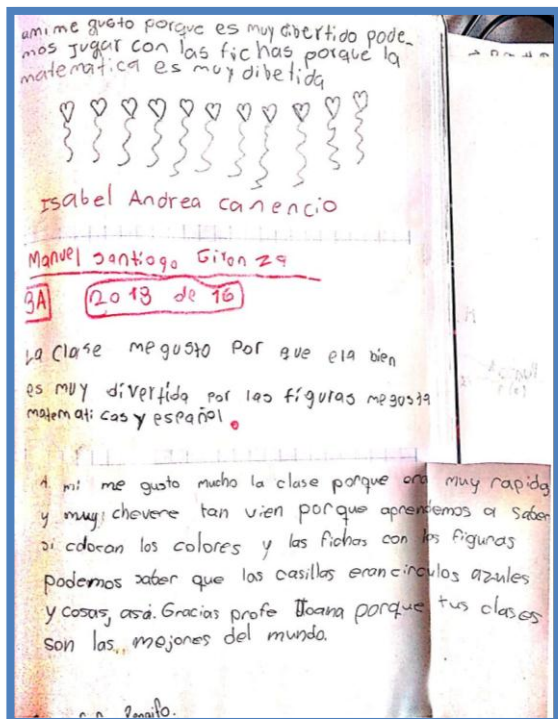 ami me gusto porque es muy dibertido pode-
mos jugar con las fichas porque la
matematica es muy dibetida
Isabel Andrea canencio
Manuel santiogo Giron
3A 2013 de 16
La clase me gusto Por que ela bien
es muy divertida por las figuras me gusta
matematicas y español.
A mi me gusto mucho la clase porque era muy rapida
y muy chevere tan vien porque aprendemos a saber
si colocan los colores y las fichas con los figuras
podemos saber que las casillas eran circulos azules
y cosas, asa. Gracias profe Joana porque tus clases
son las mejores del mundo.
Rengifo.